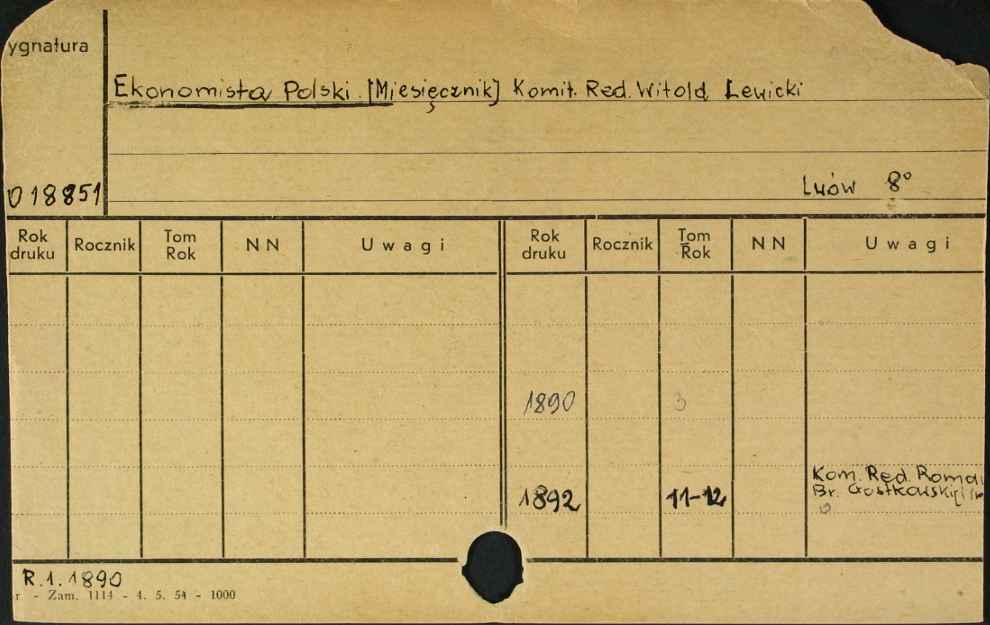 ygnatura
Ekonomista Polski [Miesięcznik] Komit. Red. Witold Lewicki
018851
Lwów 8°
Rok druku Rocznik Tom Rok NN Uwagi Rok druku Rocznik Tom Rok NN Uwagi
1890 3
Kom. Red. Roma
1892 11-12 Br. Gostkowski
R.1.1890
r - Zam. 1114 - 4. 5. 54 - 1000